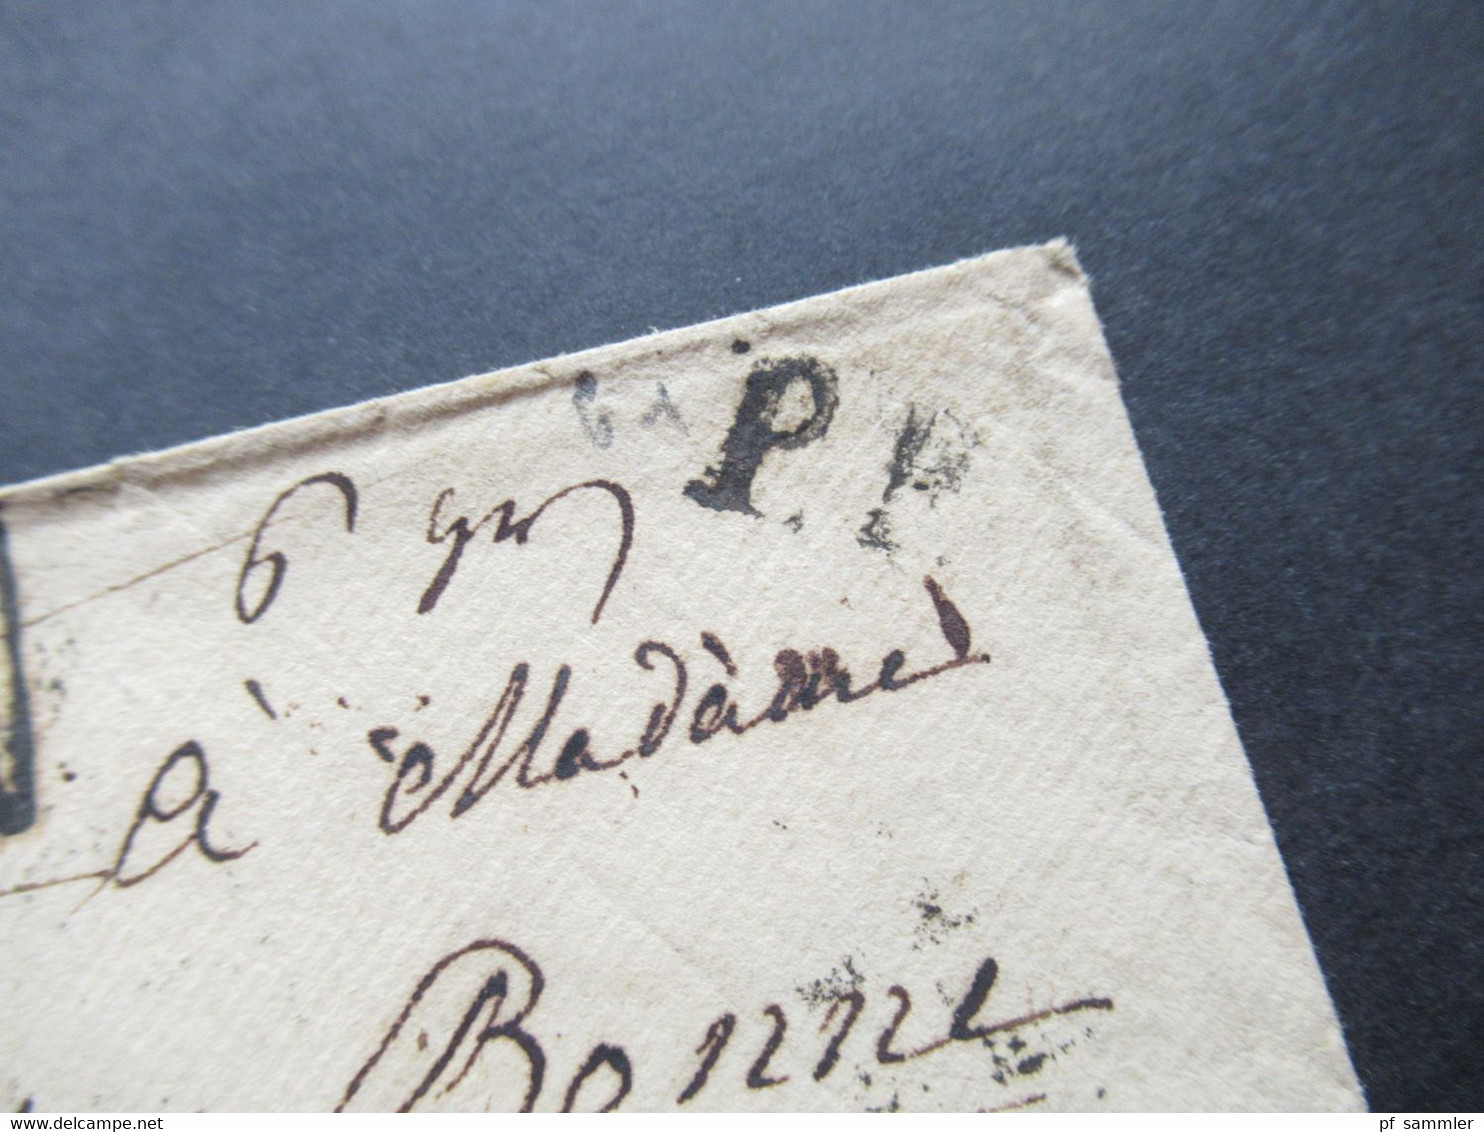 P.P.
6 gr
à Madame
Bonne
www.delcampe.net
pf_sammler